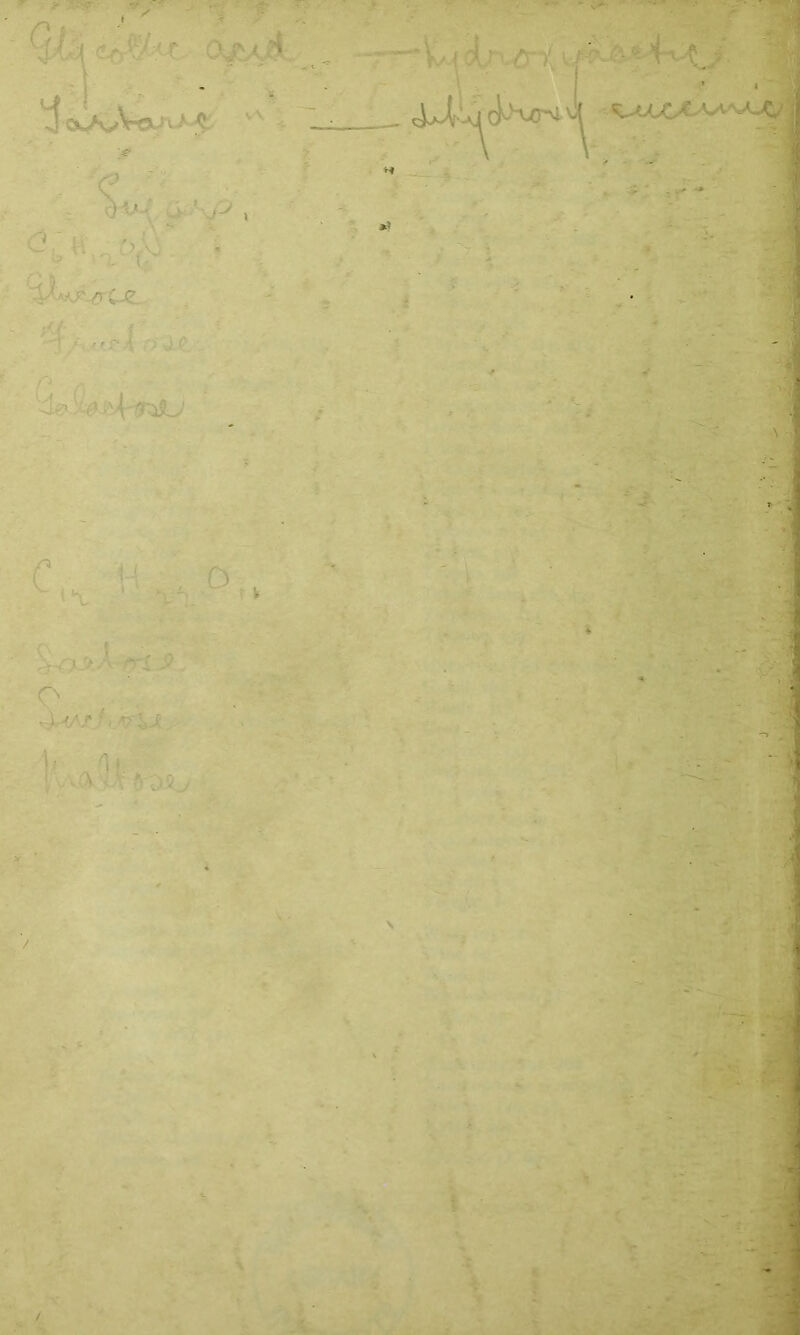 Glycollic acid — hydroxyacetic
Tartaric " — dihydroxysuccinic
Sugars,
C6 H12 O6
Glucose
Fructose
Galactose
C12 H22 O11
Lactose
Sucrose
Maltose